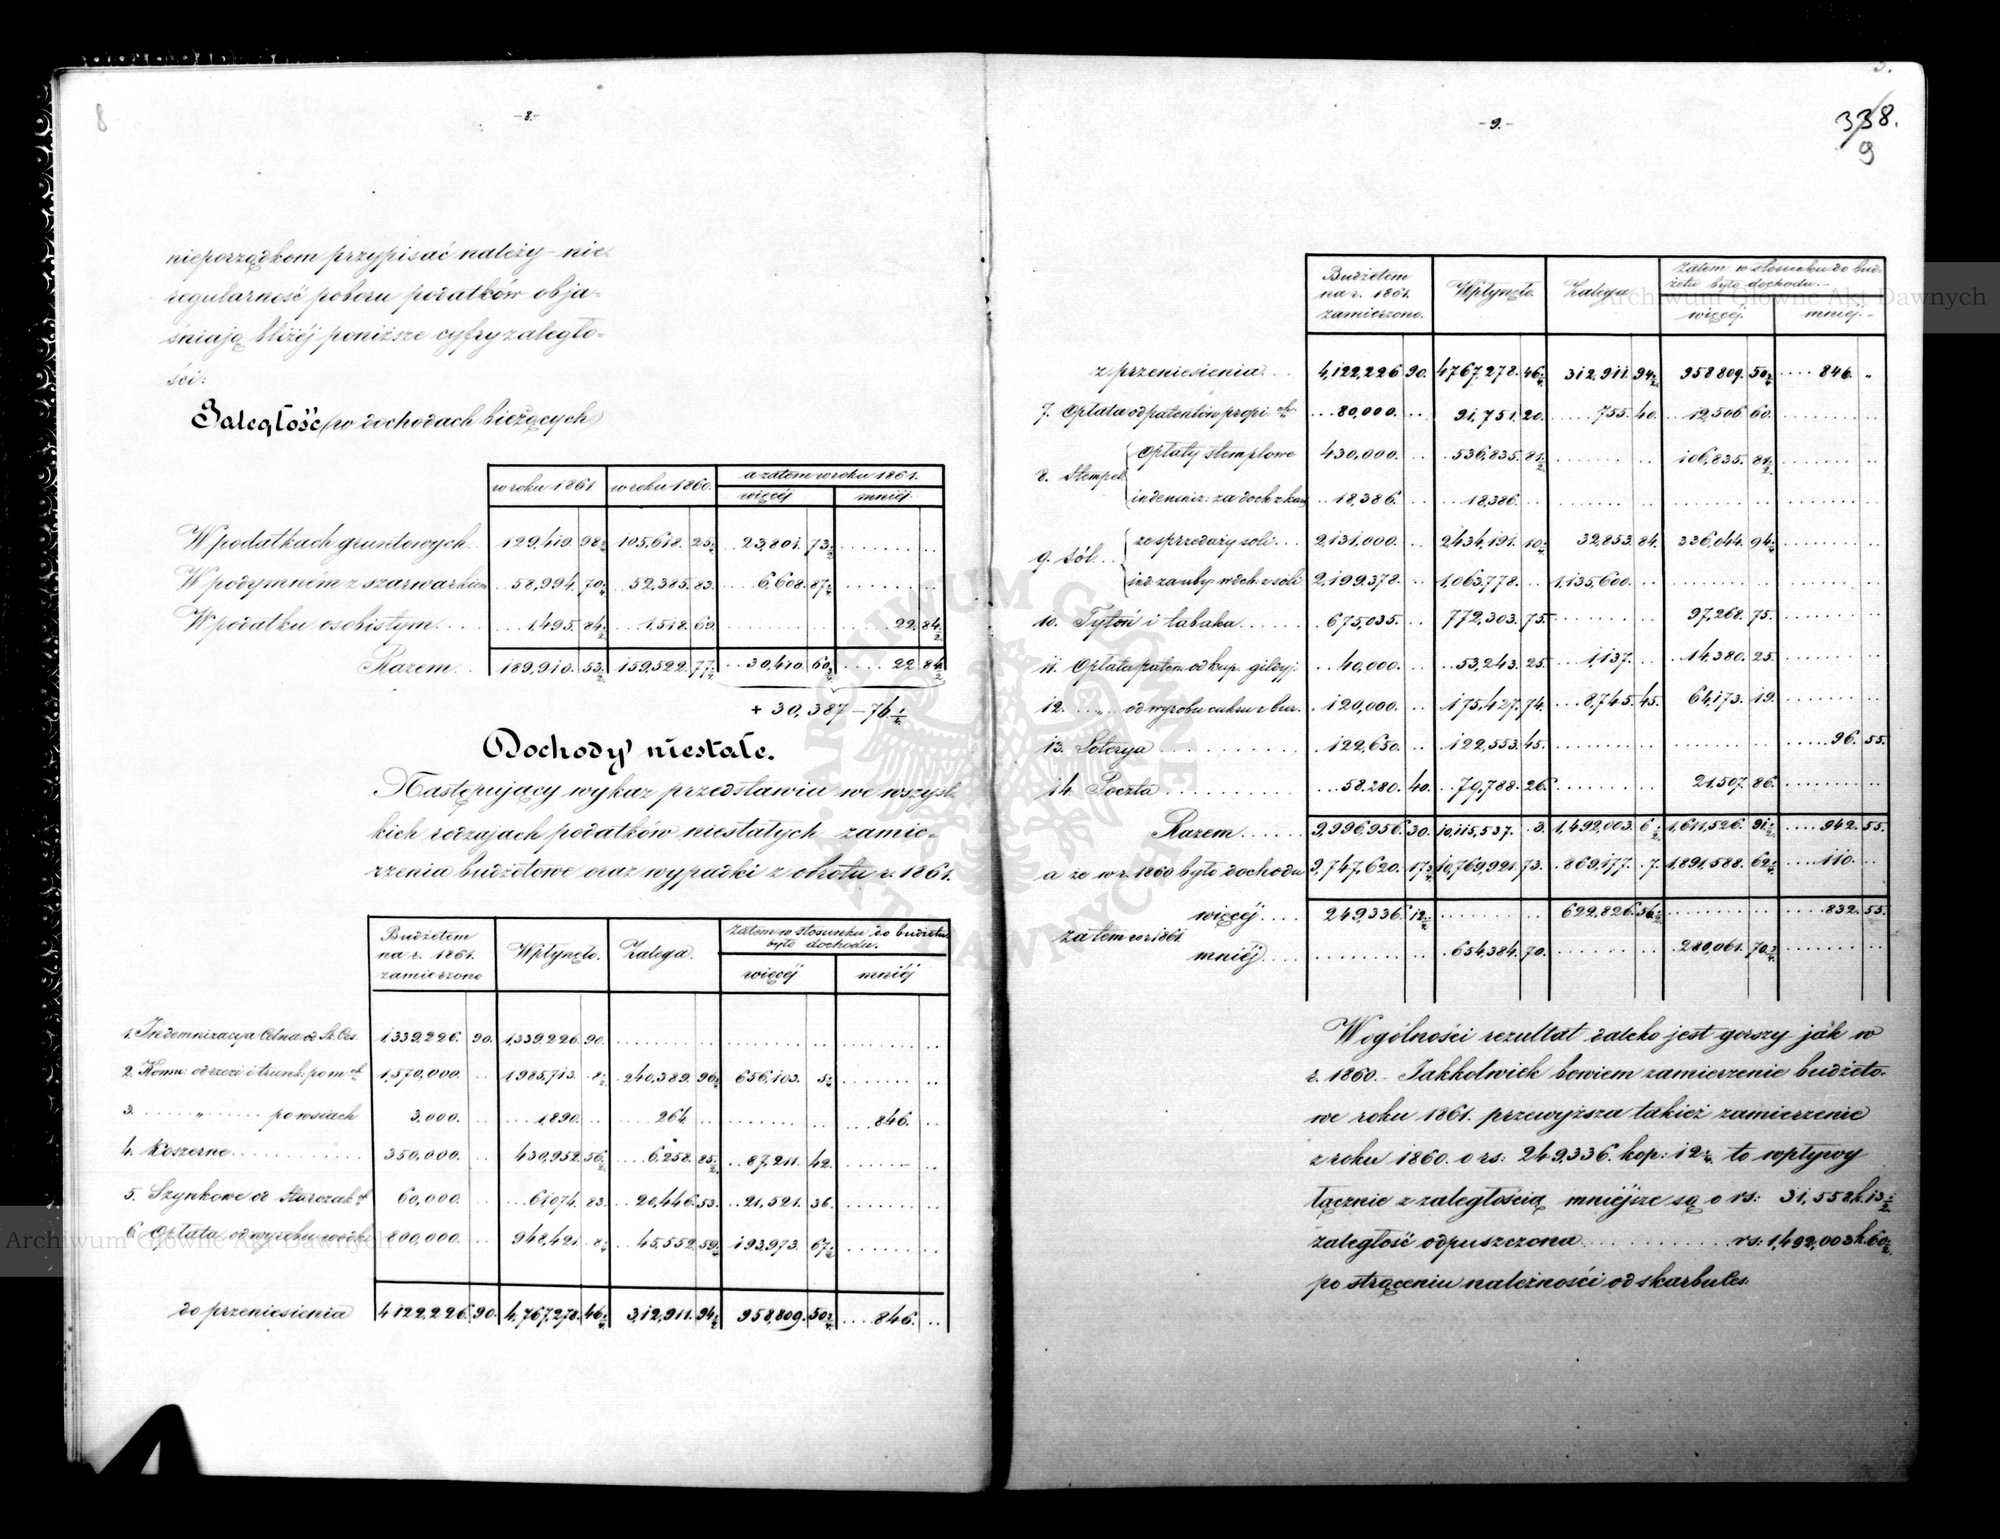 8
-8.-
nieporządkom przypisać należy - nie=
regularność poboru podatków obja=
śniają bliżéj poniższe cyfry zaległo=
ści:
Zaległość (w dochodach bieżących)
w roku 1861. w roku 1860. a zatem w roku 1861.
więcéj mniéj
W podatkach gruntowych. 129,419. 105,618. 23,801.
W podymném z szarwarkiem 58,994. 52,385. 83. 6,608.
W podatku osobistym 1,495. 1,518. 69. 22.
Razem 189,910. 159,522. 30,410. 22
+ 30,387 - 76 1/4
Dochody niestałe.
Następujący wykaz przedstawia we wszyst=
kich rodzajach podatków niestałych zamie=
rzenia budżetowe oraz wypadki z obrotu r. 1861.
Budżetem na r. 1861. zamierzono Wpłynęło. Zalega. Zatem w stosunku do budżetu było dochodu.
więcéj mniéj
1. Indemnizacya Celna od Sk. Ces. 1339,226. 90. 1,339,226. 90.
2. Kons: od rzezi i trunk: po m. 1,570,000. 1,985,713. 240,389. 656,103.
3. " po wsiach 3,000. 1,890. 264. 846.
4. Koszerne 350,000. 430,952. 6,258. 87,211. 42.
5. Szynkowe od Starozak. 60,000. 61,074. 83. 20,446. 53. 21,521. 36.
6. Opłata od wyrobu wódki 800,000. 948,421. 45,552. 193,973.
do przeniesienia 4,122,226. 90. 4,767,278. 312,911. 958,809. 846.
-9.-
338.
9
Budżetem na r. 1861. zamierzono. Wpłynęło. Zalega Zatem w stosunku do bud=
żetu było dochodu.
więcéj. mniéj.
z przeniesienia 4,122,226 90. 4767,278. 312,911. 958809. 846. "
7. Opłata od patentów propi. 80,000. 91,751. 20. 755. 40. 12,506 60.
8. Stempel Opłaty stemplowe 430,000. 536,835. 106,835.
indemniz: za doch z kar 18,386. 18,386.
9. Sól ze sprzedaży soli 2,131,000. 2,434,191. 32,853. 84. 336,044.
ind. za uby: w doch. z soli 2,199,378. 1,063,778. 1,135,600.
10. Tytoń i tabaka 675,035. 772,303. 75. 97,268. 75.
11. Opłata paten. od kup. gildyj: 40,000. 53,243. 25. 1,137. 14,380. 25.
12. " od wyrobu cukru z bur. 120,000. 175,427. 74. 8,745. 45. 64,173. 19.
13. Loterya 122,650. 122,553. 45. 96. 55.
14. Poczta 58,280. 40. 79,788. 26. 21,507. 86.
Razem 9,996,956. 30. 10,115,537. 3. 1,492,003. 1,611,526. 942. 55.
a że w r. 1860 było dochodu 9,747,620. 10,769,921. 73. 869,177. 7. 1,891,588. 110.
zatem w r. 1861 więcéj 249,336. 622,826. 832. 55.
mniéj 654,384. 70. 280,061.
Wogólności rezultat daleko jest gorszy jak w
r. 1860. Jakkolwiek bowiem zamierzenie budżeto=
we roku 1861. przewyższa takież zamierzenie
z roku 1860. o rs: 249,336. kop: 12 to wpływy
łącznie z zaległością mniéjsze są o rs: 31,558 k. 13
zaległość odpuszczona rs: 1,492,003 k. 60
po strąceniu należności od skarbu Ces.
ARCHIWUM GŁÓWNE AKT DAWNYCH
Archiwum Główne Akt Dawnych
Archiwum Główne Akt Dawnych